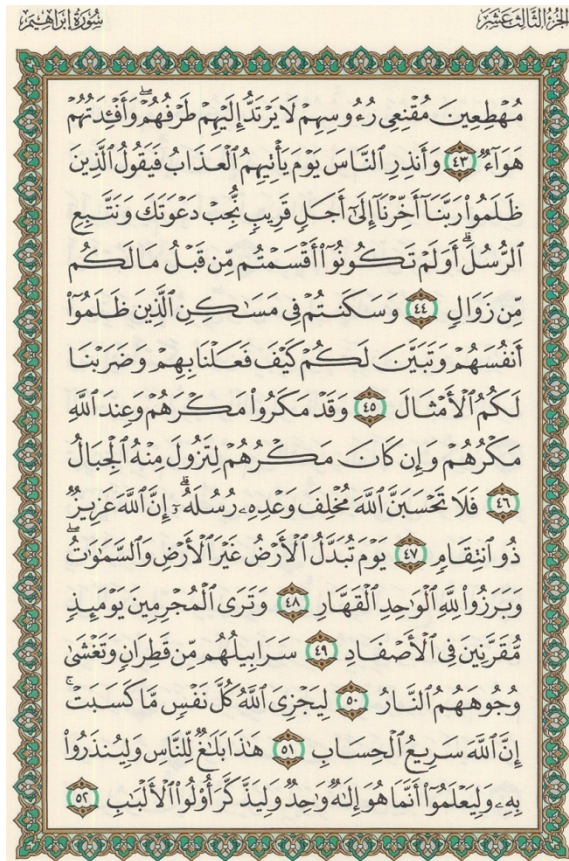 الجزء الثالث عشر
سُورَةُ إِبْرَاهِيم
مُهْطِعِينَ مُقْنِعِى رُءُوسِهِمْ لَا يَرْتَدُّ إِلَيْهِمْ طَرْفُهُمْ ۖ وَأَفْـِٔدَتُهُمْ
هَوَآءٌ ٤٣ وَأَنذِرِ ٱلنَّاسَ يَوْمَ يَأْتِيهِمُ ٱلْعَذَابُ فَيَقُولُ ٱلَّذِينَ
ظَلَمُوا۟ رَبَّنَآ أَخِّرْنَآ إِلَىٰٓ أَجَلٍ قَرِيبٍ نُّجِبْ دَعْوَتَكَ وَنَتَّبِعِ
ٱلرُّسُلَ ۗ أَوَلَمْ تَكُونُوٓا۟ أَقْسَمْتُم مِّن قَبْلُ مَا لَكُم
مِّن زَوَالٍ ٤٤ وَسَكَنتُمْ فِى مَسَـٰكِنِ ٱلَّذِينَ ظَلَمُوٓا۟
أَنفُسَهُمْ وَتَبَيَّنَ لَكُمْ كَيْفَ فَعَلْنَا بِهِمْ وَضَرَبْنَا
لَكُمُ ٱلْأَمْثَالَ ٤٥ وَقَدْ مَكَرُوا۟ مَكْرَهُمْ وَعِندَ ٱللَّهِ
مَكْرُهُمْ وَإِن كَانَ مَكْرُهُمْ لِتَزُولَ مِنْهُ ٱلْجِبَالُ
٤٦ فَلَا تَحْسَبَنَّ ٱللَّهَ مُخْلِفَ وَعْدِهِۦ رُسُلَهُۥٓ ۗ إِنَّ ٱللَّهَ عَزِيزٌ
ذُو ٱنتِقَامٍ ٤٧ يَوْمَ تُبَدَّلُ ٱلْأَرْضُ غَيْرَ ٱلْأَرْضِ وَٱلسَّمَـٰوَٰتُ ۖ
وَبَرَزُوا۟ لِلَّهِ ٱلْوَٰحِدِ ٱلْقَهَّارِ ٤٨ وَتَرَى ٱلْمُجْرِمِينَ يَوْمَئِذٍ
مُّقَرَّنِينَ فِى ٱلْأَصْفَادِ ٤٩ سَرَابِيلُهُم مِّن قَطِرَانٍ وَتَغْشَىٰ
وُجُوهَهُمُ ٱلنَّارُ ٥٠ لِيَجْزِىَ ٱللَّهُ كُلَّ نَفْسٍ مَّا كَسَبَتْ ۚ
إِنَّ ٱللَّهَ سَرِيعُ ٱلْحِسَابِ ٥١ هَـٰذَا بَلَـٰغٌ لِّلنَّاسِ وَلِيُنذَرُوا۟
بِهِۦ وَلِيَعْلَمُوٓا۟ أَنَّمَا هُوَ إِلَـٰهٌ وَٰحِدٌ وَلِيَذَّكَّرَ أُو۟لُوا۟ ٱلْأَلْبَـٰبِ ٥٢